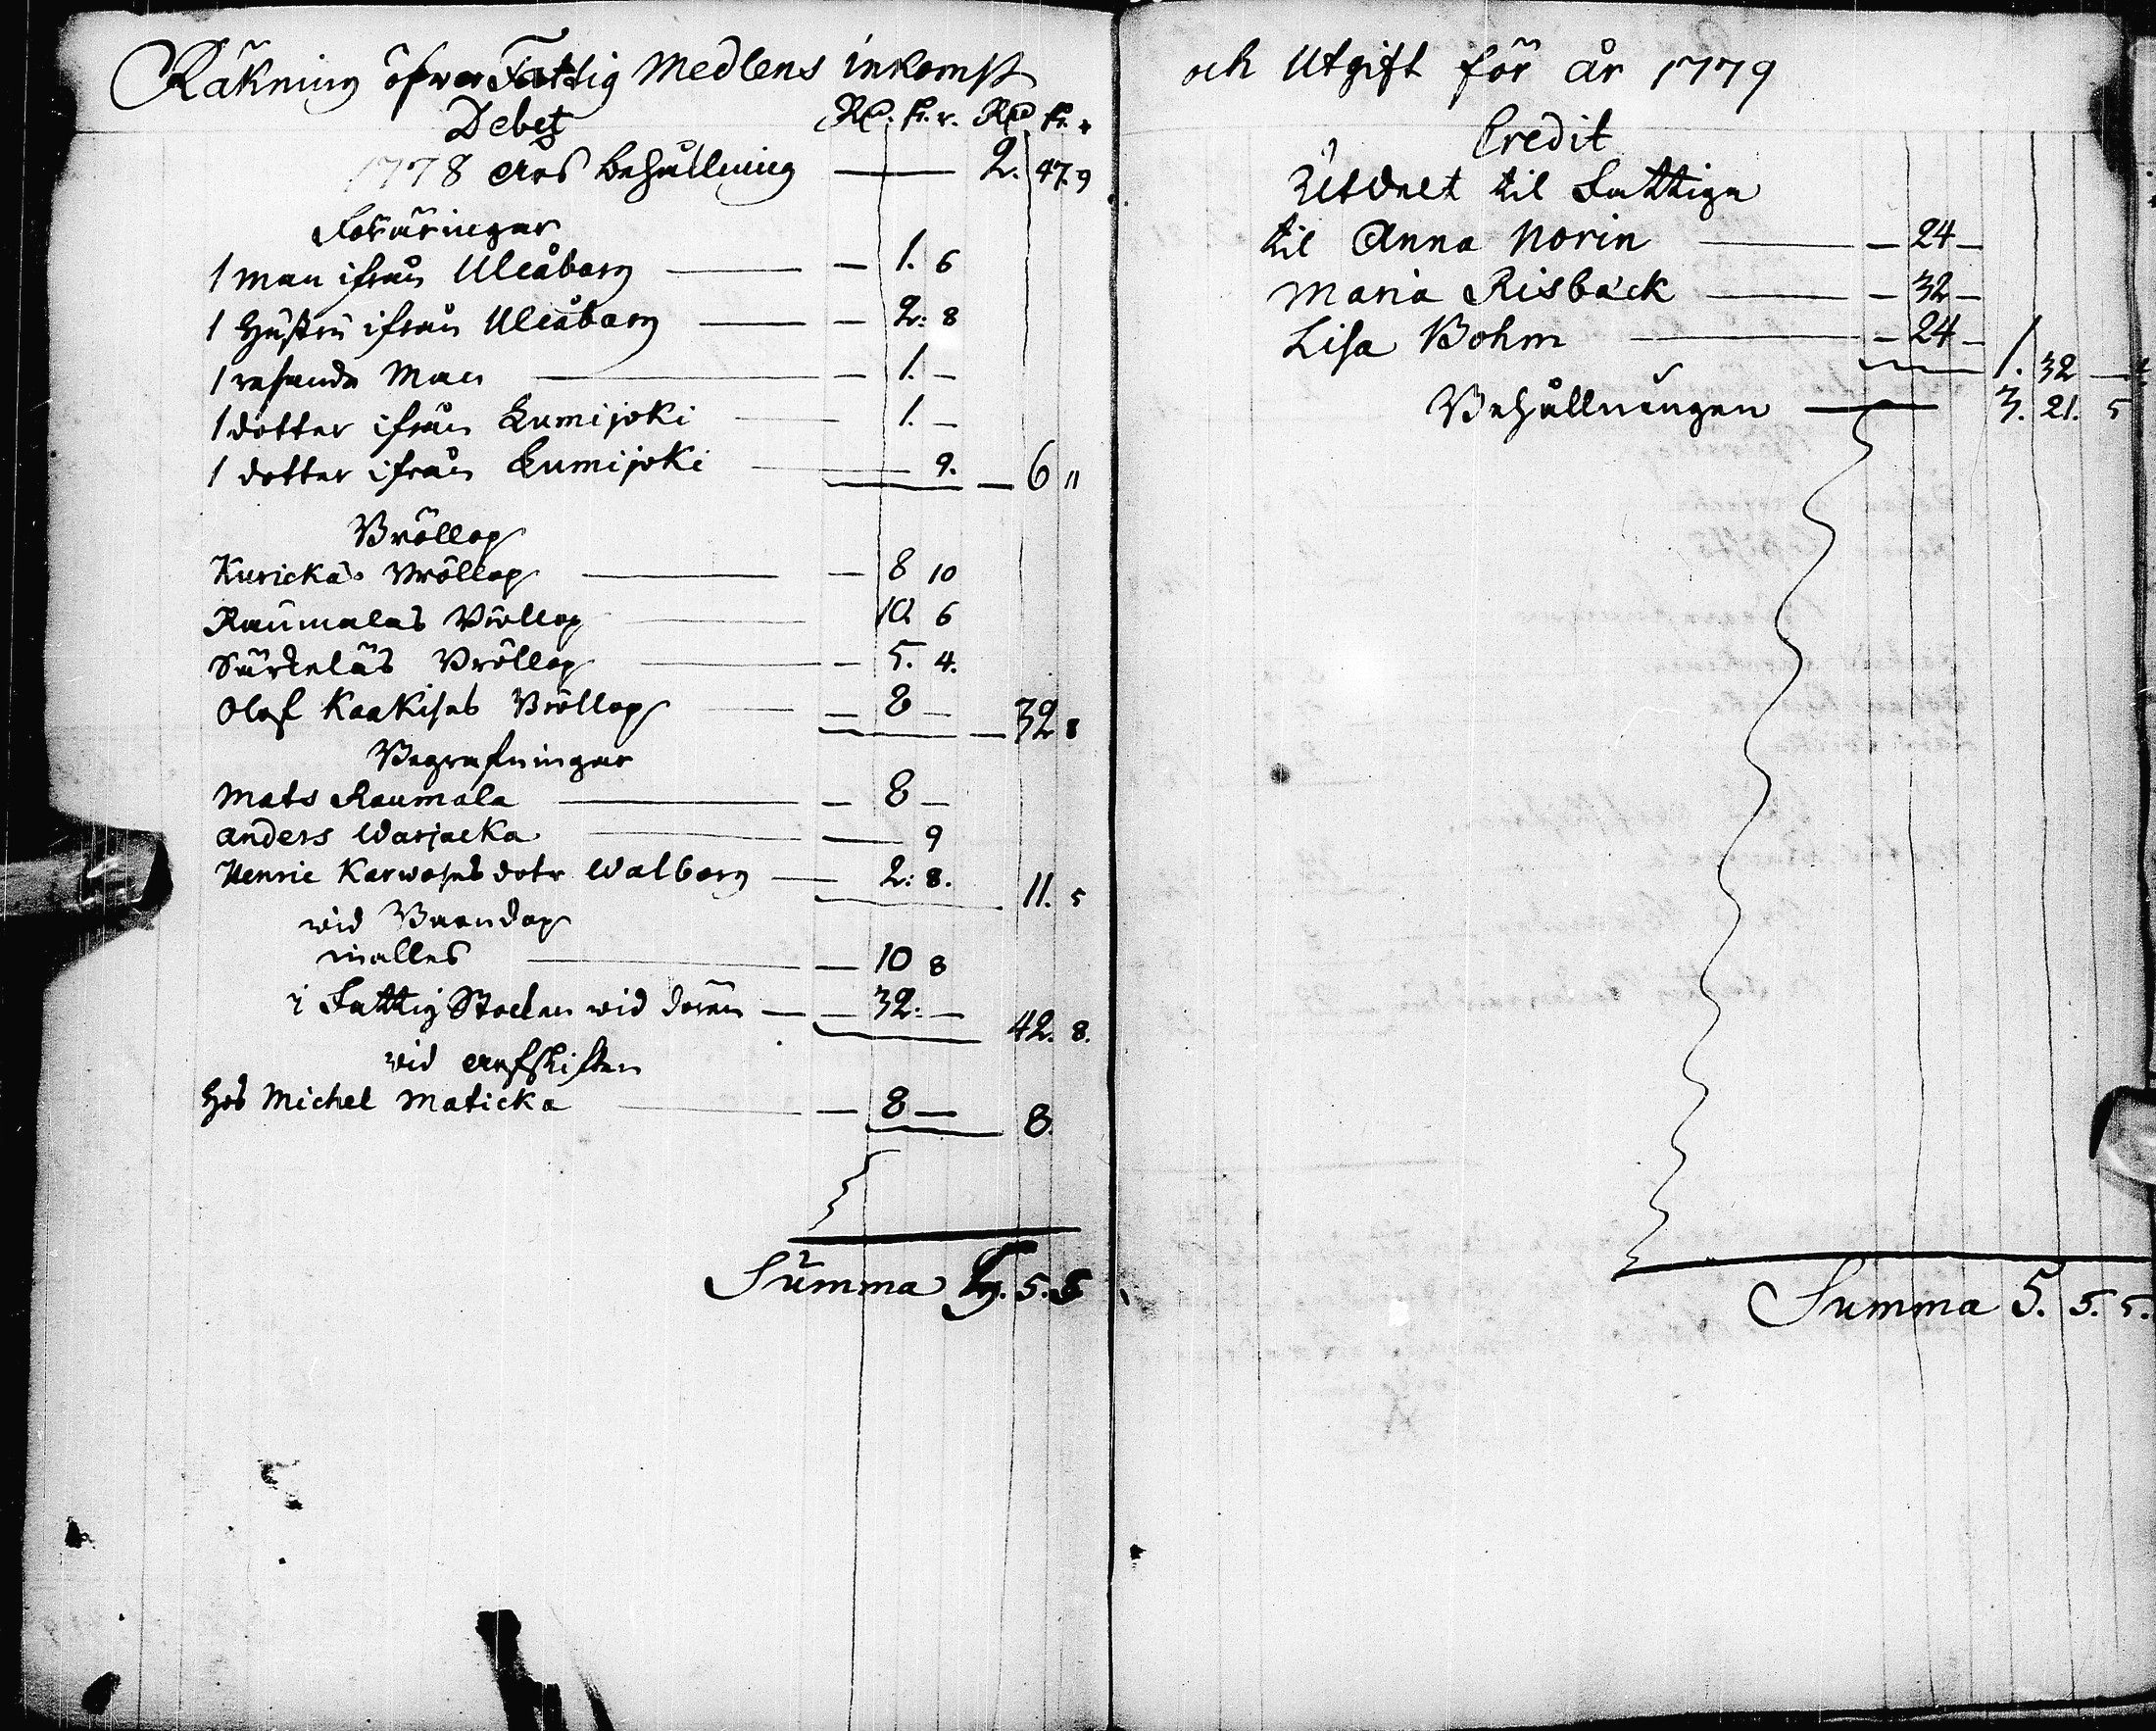 Räkning öfver Fattig Medlens inkomst
Debet Rd. sk. r. Rd sk. r
1778 års behållning — 2. 47. 9
Föräringar
1 man ifrån Uleåborg — 1. 6
1 Hustru ifrån Uleåborg — 2: 8
1 resande Man — 1. —
1 dotter ifrån Lumijoki — 1. —
1 dotter ifrån Lumijoki — 9. — 6 11
Bröllop
Kurickas Bröllop — 8 10
Raumalas Bröllop 10. 6
Särkeläs Bröllop — 5. 4.
Olof Kaakises Bröllop — 8 — 32 8
Begrafningar
Mats Raumala — 8 —
Anders Warjacka — 9
Henric Karwoses dotr Walborg — 2: 8. 11. 5
wid Barndop
— 10 8
i Fattig Stocken wid dören — 32. — 42. 8.
wid Arfskiften
Hos Michel Maticka — 8 — 8.
Summa 5. 5. 5
och Utgift för år 1779
Credit
Utdelt til Fattiga
til Anna Norin — 24 —
Maria Risback — 32 —
Lisa Bohm — 24 — 1. 32 —
Behållningen — 3. 21. 5
Summa 5. 5. 5.